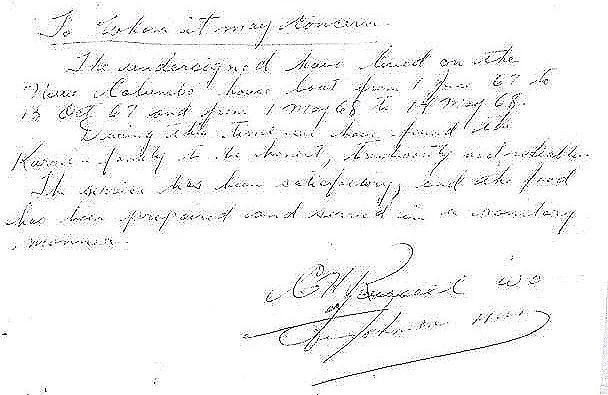 To Whom it may concern
The undersigned have lived on the
New Columbo house boat from 1 June 67 to
15 Oct 67 and from 1 May 68 to 14 May 68.
During this time we have found the
family to be honest, trustworthy and reliable.
The service has been satisfactory, and the food
has been prepared and served in a sanitary
manner.
C H